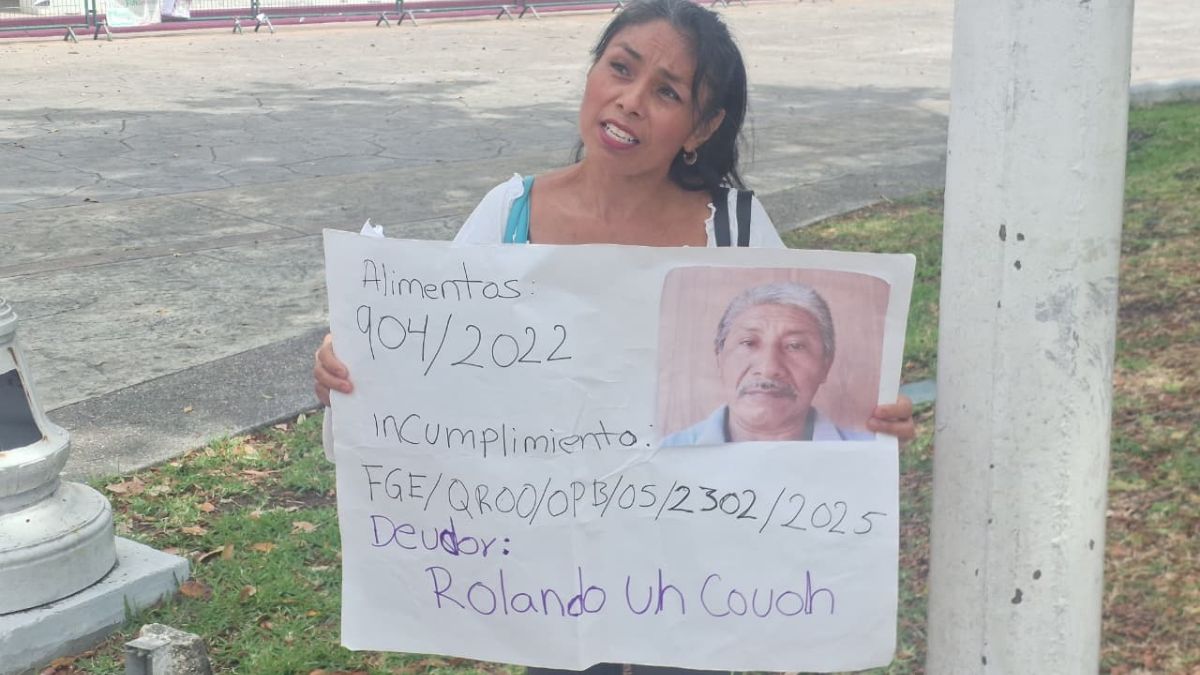 Alimentos:
904/2022
Incumplimiento:
FGE/QROO/OPB/05/2302/2025
Deudor:
Rolando Uh Couoh